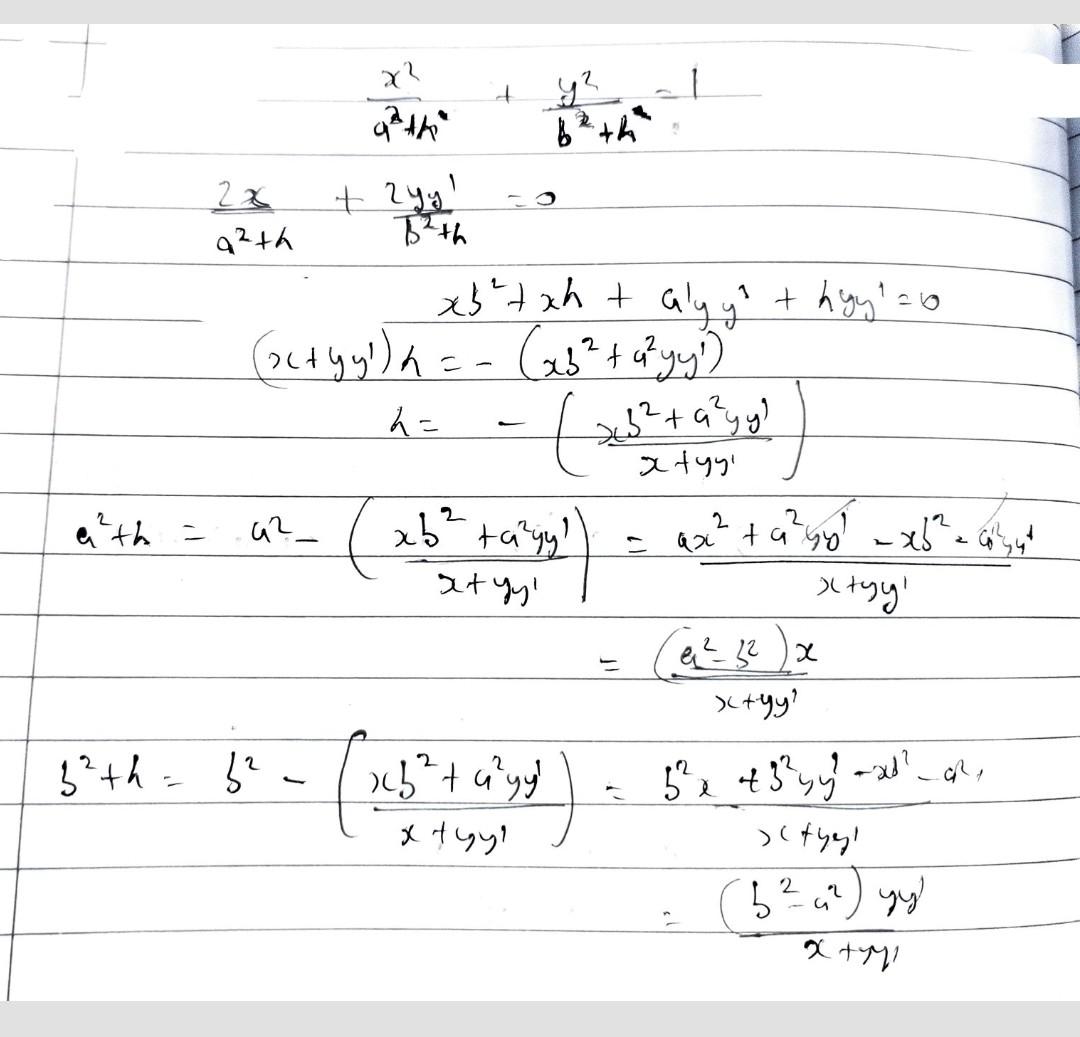 x²/(a²+h) + y²/(b²+h) = 1
2x/(a²+h) + 2yy'/(b²+h) = 0
xb² + xh + a'yy' + hyy' = 0
(x+yy')h = -(xb² + a²yy')
h = -((xb² + a²yy')/(x+yy'))
a²+h = a² - ((xb² + a²yy')/(x+yy')) = (ax² + a²yy' - xb² - a²yy')/(x+yy')
= ((a²-b²)x)/(x+yy')
b²+h = b² - ((xb² + a²yy')/(x+yy')) = (b²x + b²yy' - xb² - a²)/(x+yy')
= ((b²-a²)yy')/(x+yy')